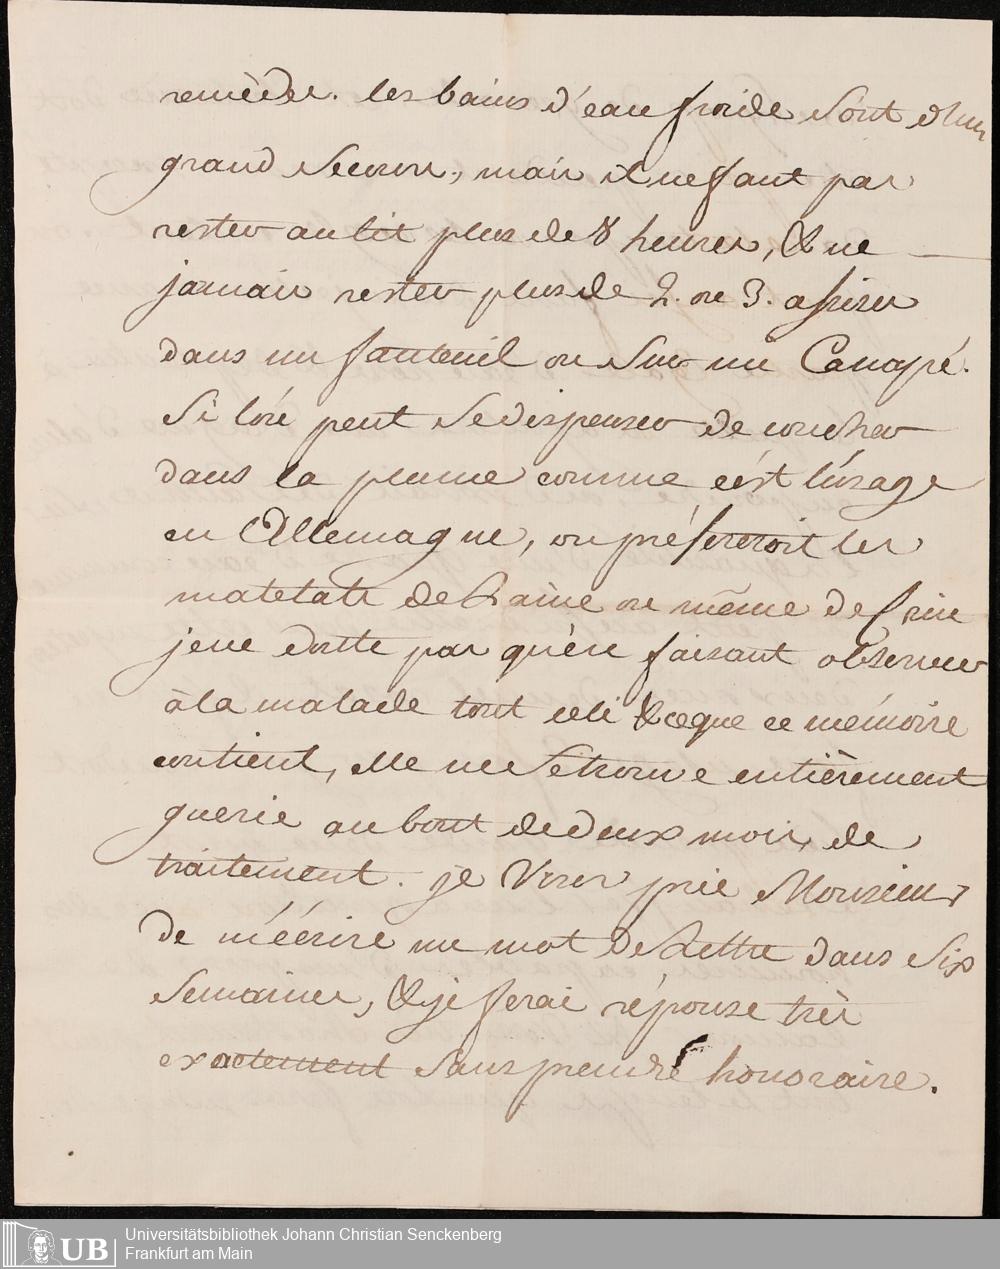 remèder. les bains d'eau froide sont d'un
grand secours, mais il ne faut pas
rester au lit plus de 8 heures, & ne
jamais rester plus de 2. ou 3. assises
dans un fauteuil ou sur un Canapé.
Si l'on peut se dispenser de coucher
dans la plume comme c'est l'usage
en Allemagne, on préfereroit les
matelats de Laine ou même de Crin
je ne doute pas qu'en faisant observer
à la malade tout cela & ce que ce mémoire
contient, elle ne se trouve entièrement
guerie au bout de deux mois de
traitement. je Vous prie Monsieur
de m'écrire un mot de Lettre dans Six
Semaines, & je ferai réponse très
exactement sans prendre honoraire.
UB
Universitätsbibliothek Johann Christian Senckenberg
Frankfurt am Main